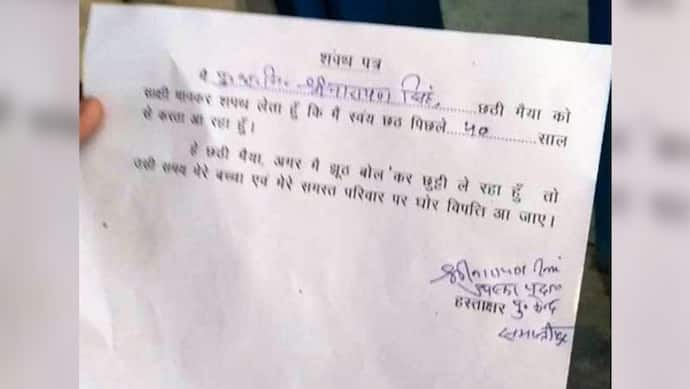 शपथ पत्र
मै पु०अ०नि०- श्रीनारायण सिंह,.........छठी मैया को
साक्षी मानकर शपथ लेता हूँ कि मै स्वंय छठ पिछले....५०............साल
से करता आ रहा हूँ।
हे छठी मैया, अगर मै झूठ बोल कर छुट्टी ले रहा हूँ तो
उसी समय मेरे बच्चा एवं मेरे समस्त परिवार पर घोर विपत्ति आ जाए।
श्रीनारायण सिंह
हस्ताक्षर पु० केन्द्र